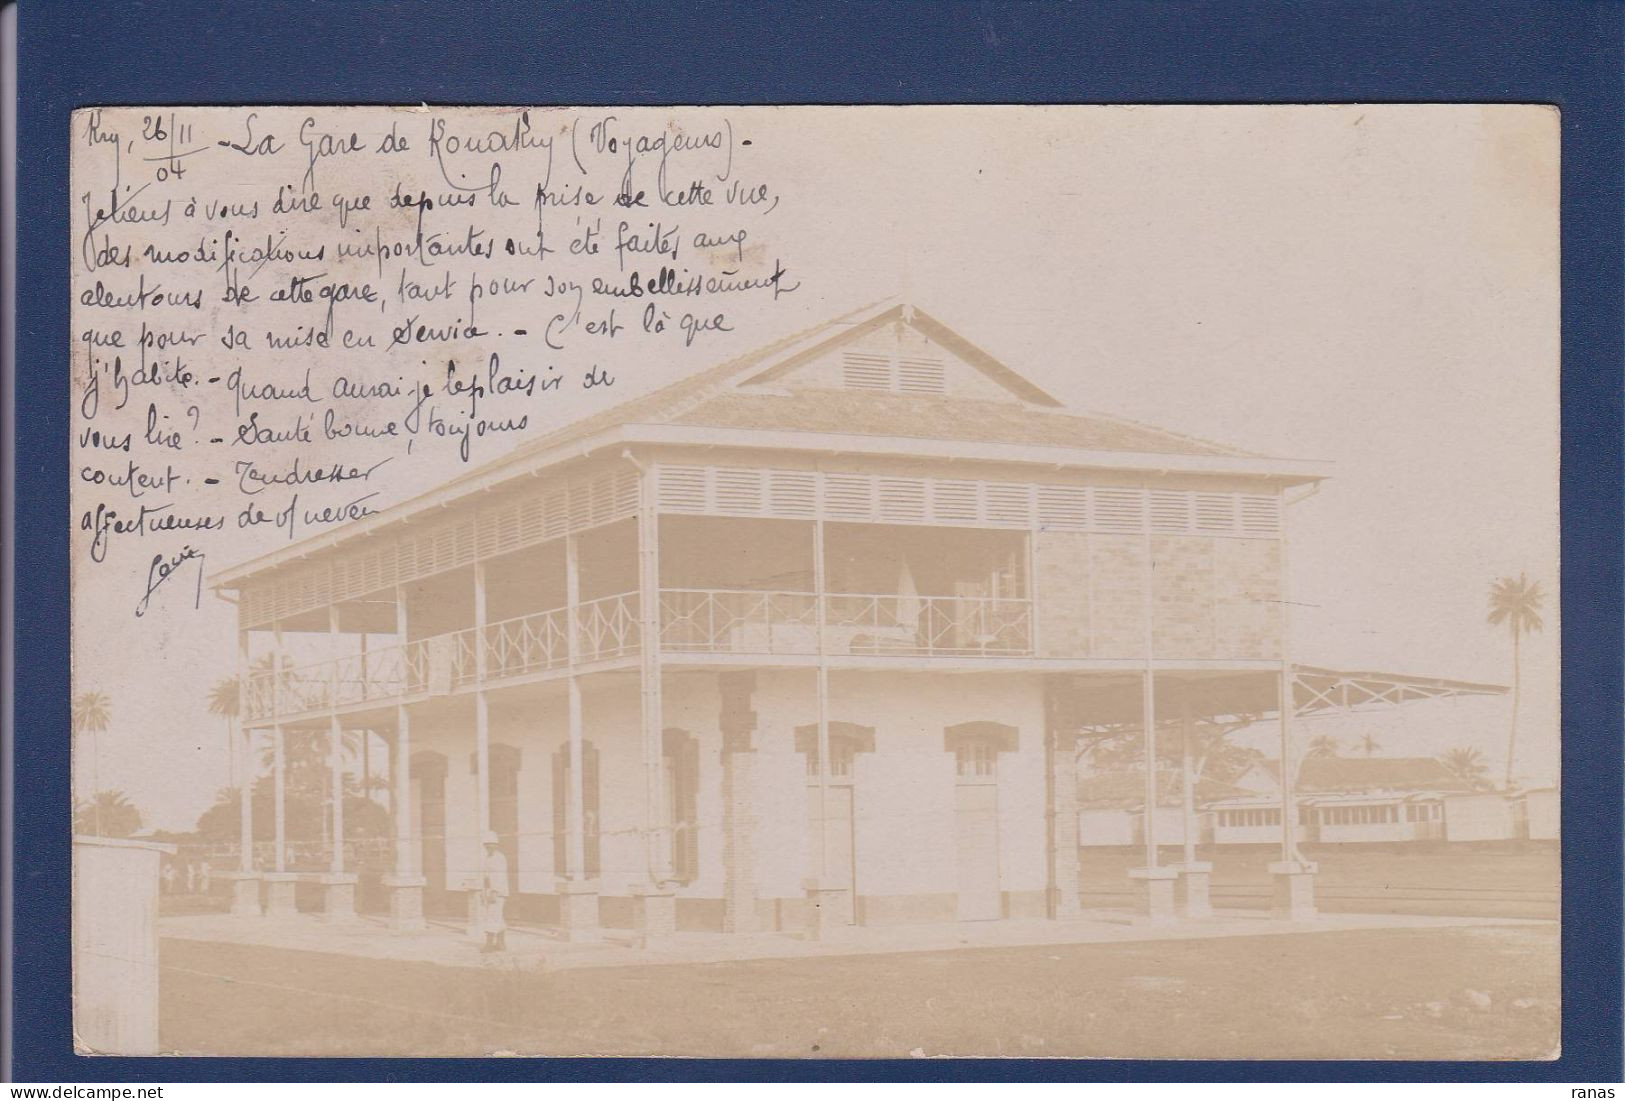 Kry, 26/11 04 - La Gare de Konakry (Voyageurs) -
Je tiens à vous dire que depuis la prise de cette vue,
des modifications importantes ont été faites aux
alentours de cette gare, tant pour son embellissement
que pour sa mise en service. - C'est là que
j'habite. - Quand aurai-je le plaisir de
vous lire? - Santé bonne, toujours
content. - Tendresses
affectueuses de v/ neveu
ranas